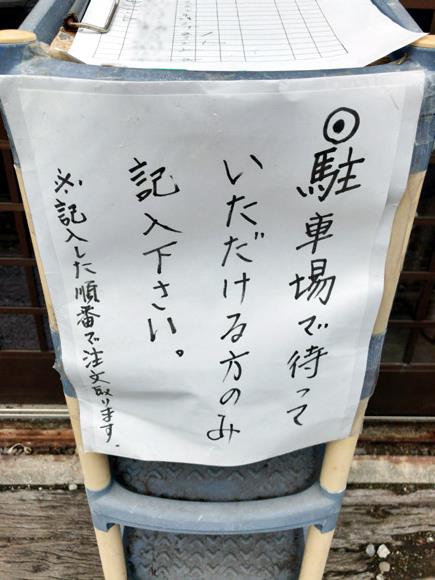 ◎駐車場で待って
いただける方のみ
記入下さい。
※記入した順番で注文取ります。